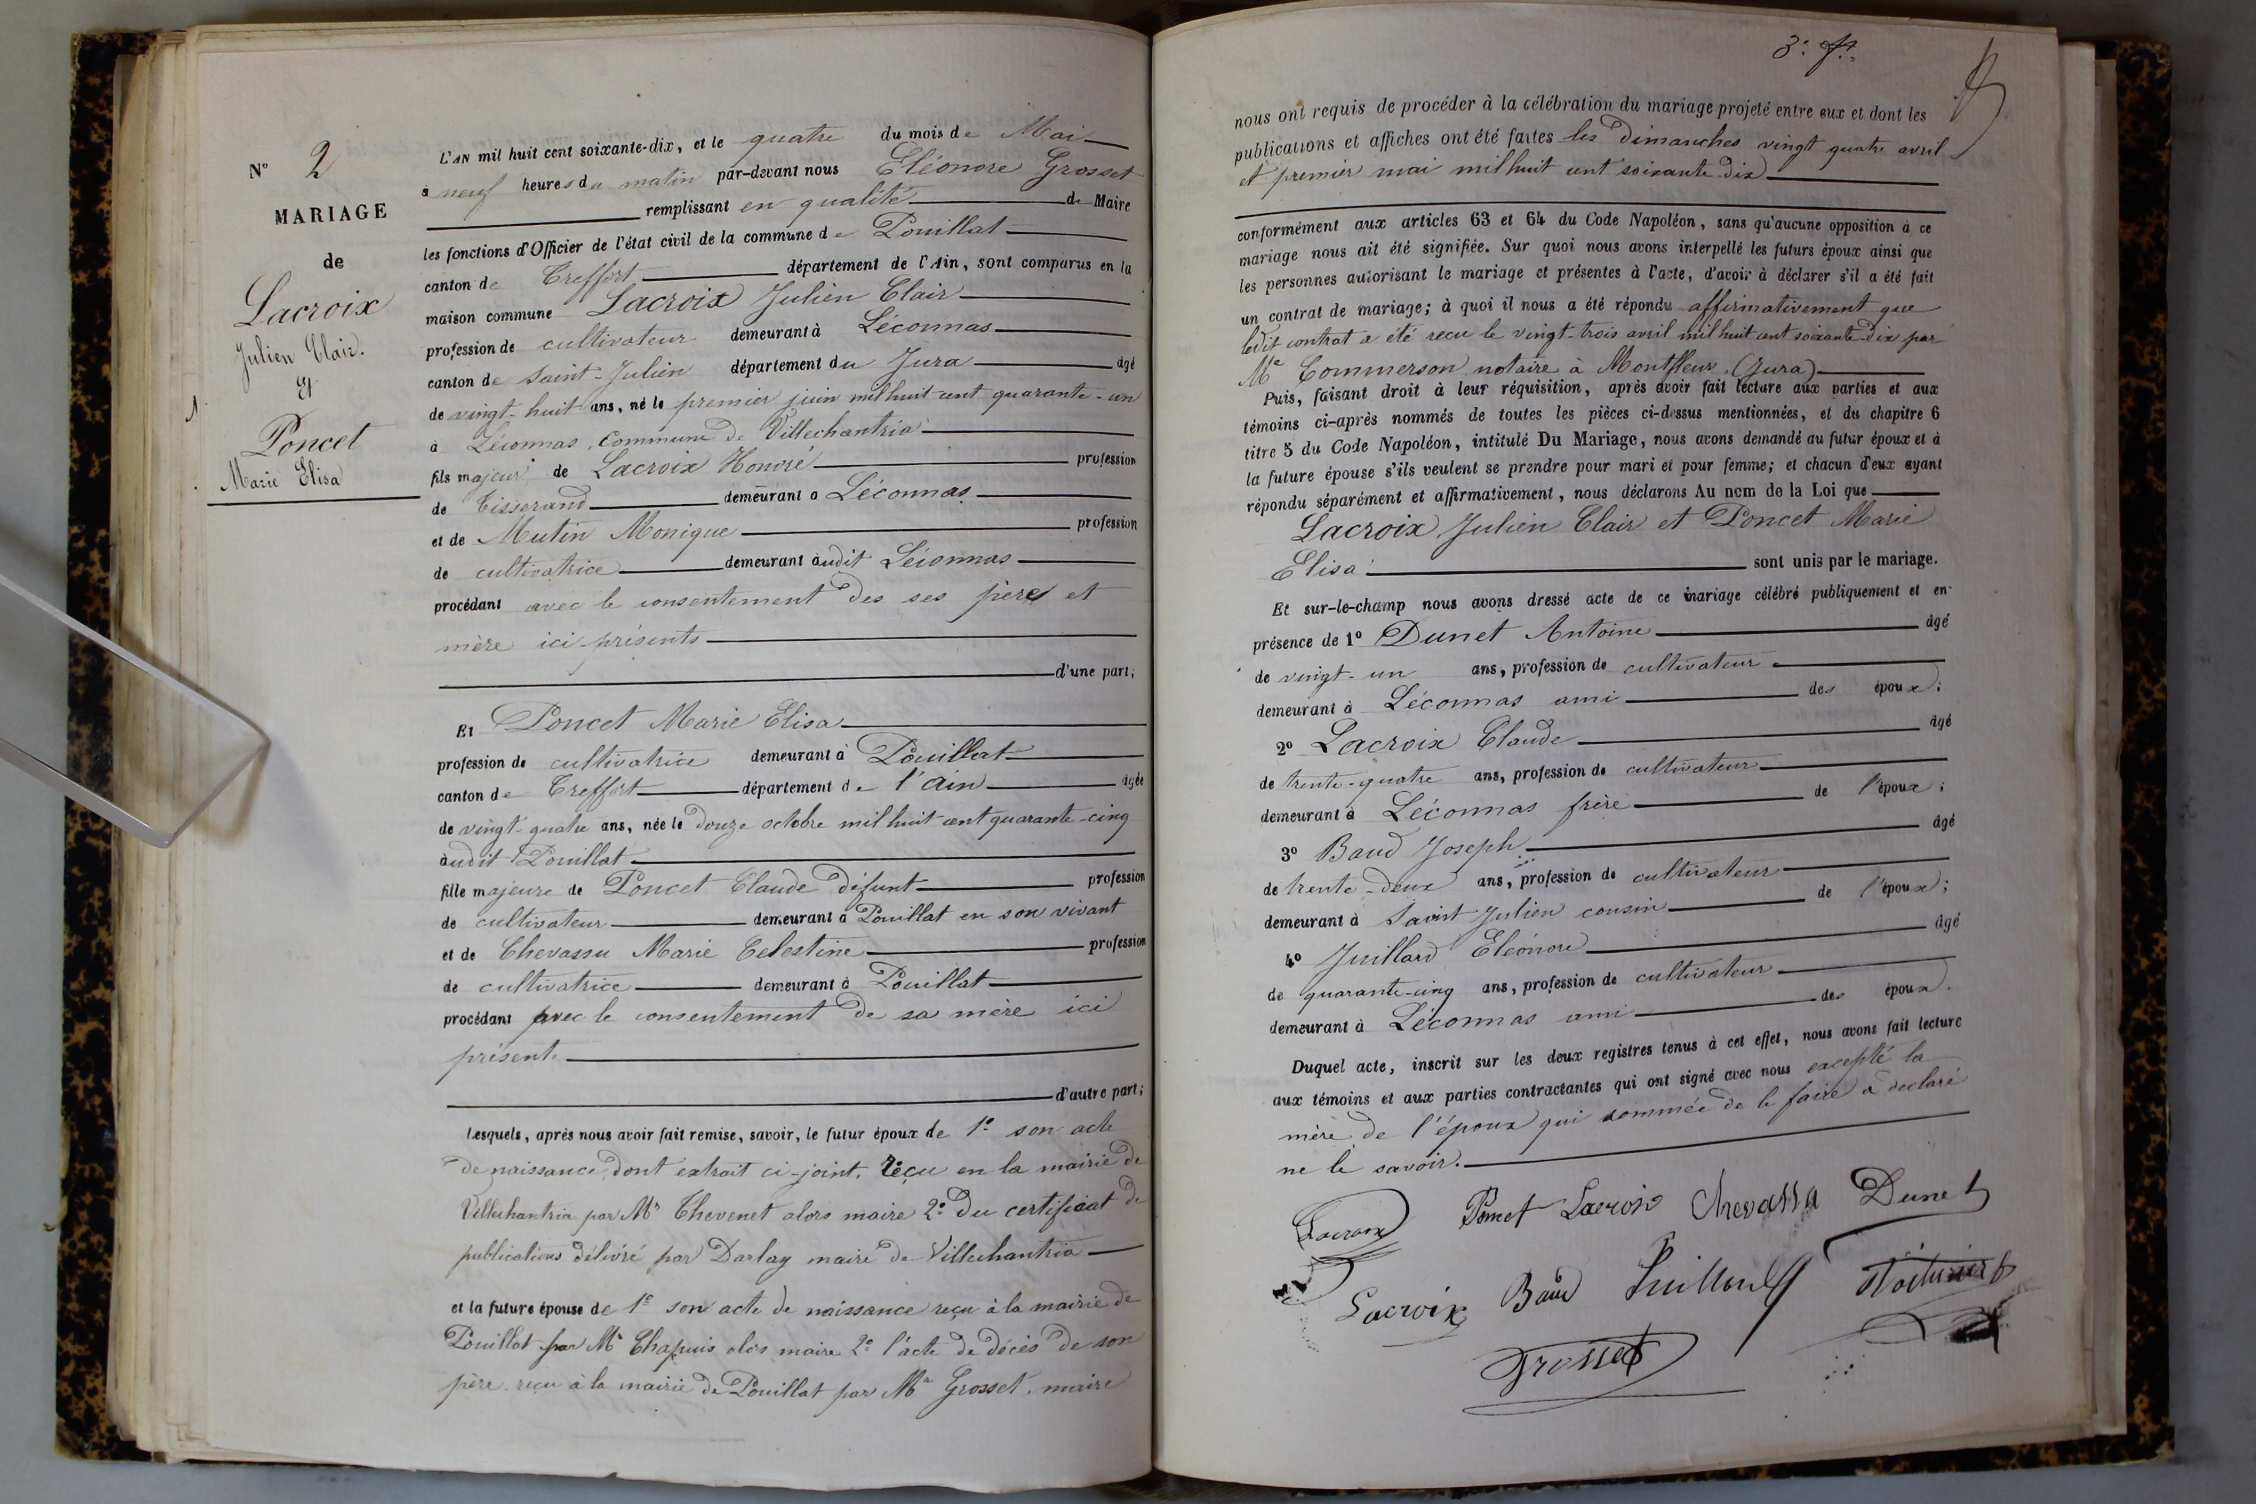 N° 2
MARIAGE
de
Lacroix
Julien Clair.
et
Poncet
Marie Elisa
L'AN mil huit cent soixante-dix, et le quatre du mois de Mai
à neuf heures du matin par-devant nous Eléonore Grosset
remplissant en qualité de Maire
les fonctions d'Officier de l'état civil de la commune de Pouillat
canton de Treffort département de l'Ain, sont comparus en la
maison commune Lacroix Julien Clair
profession de cultivateur demeurant à Léconnas
canton de Saint-Julien département du Jura âgé
de vingt-huit ans, né le premier juin mil huit cent quarante-un
à Léconnas, Commune de Villechantria
fils majeur de Lacroix Honoré profession
de Tisserand demeurant à Léconnas
et de Mutin Monique profession
de cultivatrice demeurant audit Léconnas
procédant avec le consentement des ses père et
mère ici présents
d'une part;
Et Poncet Marie Elisa
profession de cultivatrice demeurant à Pouillat
canton de Treffort département de l'Ain âgée
de vingt-quatre ans, née le douze octobre mil huit cent quarante-cinq
audit Pouillat
fille majeure de Poncet Claude défunt profession
de cultivateur demeurant à Pouillat en son vivant
et de Chevassu Marie Celestine profession
de cultivatrice demeurant à Pouillat
procédant avec le consentement de sa mère ici
présente
d'autre part;
Lesquels, après nous avoir fait remise, savoir, le futur époux de 1° son acte
de naissance, dont extrait ci-joint, reçu en la mairie de
Villechantria par Mr Thevenet alors maire 2° du certificat de
publications délivré par Darlay maire de Villechantria
et la future épouse de 1° son acte de naissance reçu à la mairie de
Pouillat par Mr Chapuis alors maire 2° l'acte de décès de son
père reçu à la mairie de Pouillat par Mr Grosset, maire
3e ft.
nous ont requis de procéder à la célébration du mariage projeté entre eux et dont les
publications et affiches ont été faites les dimanches vingt quatre avril
et premier mai mil huit cent soixante-dix
conformément aux articles 63 et 64 du Code Napoléon, sans qu'aucune opposition à ce
mariage nous ait été signifiée. Sur quoi nous avons interpellé les futurs époux ainsi que
les personnes autorisant le mariage et présentes à l'acte, d'avoir à déclarer s'il a été fait
un contrat de mariage; à quoi il nous a été répondu affirmativement que
ledit contrat a été reçu le vingt-trois avril mil huit cent soixante-dix par
Me Commerson notaire à Montfleur (Jura)
Puis, faisant droit à leur réquisition, après avoir fait lecture aux parties et aux
témoins ci-après nommés de toutes les pièces ci-dessus mentionnées, et du chapitre 6
titre 5 du Code Napoléon, intitulé Du Mariage, nous avons demandé au futur époux et à
la future épouse s'ils veulent se prendre pour mari et pour femme; et chacun d'eux ayant
répondu séparément et affirmativement, nous déclarons Au nom de la Loi que
Lacroix Julien Clair et Poncet Marie
Elisa sont unis par le mariage.
Et sur-le-champ nous avons dressé acte de ce mariage célébré publiquement et en
présence de 1° Dunet Antoine âgé
de vingt-un ans, profession de cultivateur
demeurant à Léconnas ami des époux;
2° Lacroix Claude âgé
de trente-quatre ans, profession de cultivateur
demeurant à Léconnas frère de l'époux;
3° Baud Joseph âgé
de trente-deux ans, profession de cultivateur
demeurant à Saint Julien cousin de l'époux;
4° Juillard Eléonore âgé
de quarante-cinq ans, profession de cultivateur
demeurant à Léconnas ami des époux.
Duquel acte, inscrit sur les deux registres tenus à cet effet, nous avons fait lecture
aux témoins et aux parties contractantes qui ont signé avec nous excepté la
mère de l'époux qui sommée de le faire a déclaré
ne le savoir.
Lacroix Poncet Lacroix Chevassu Dunet
Lacroix Baud Juillard
Grosset